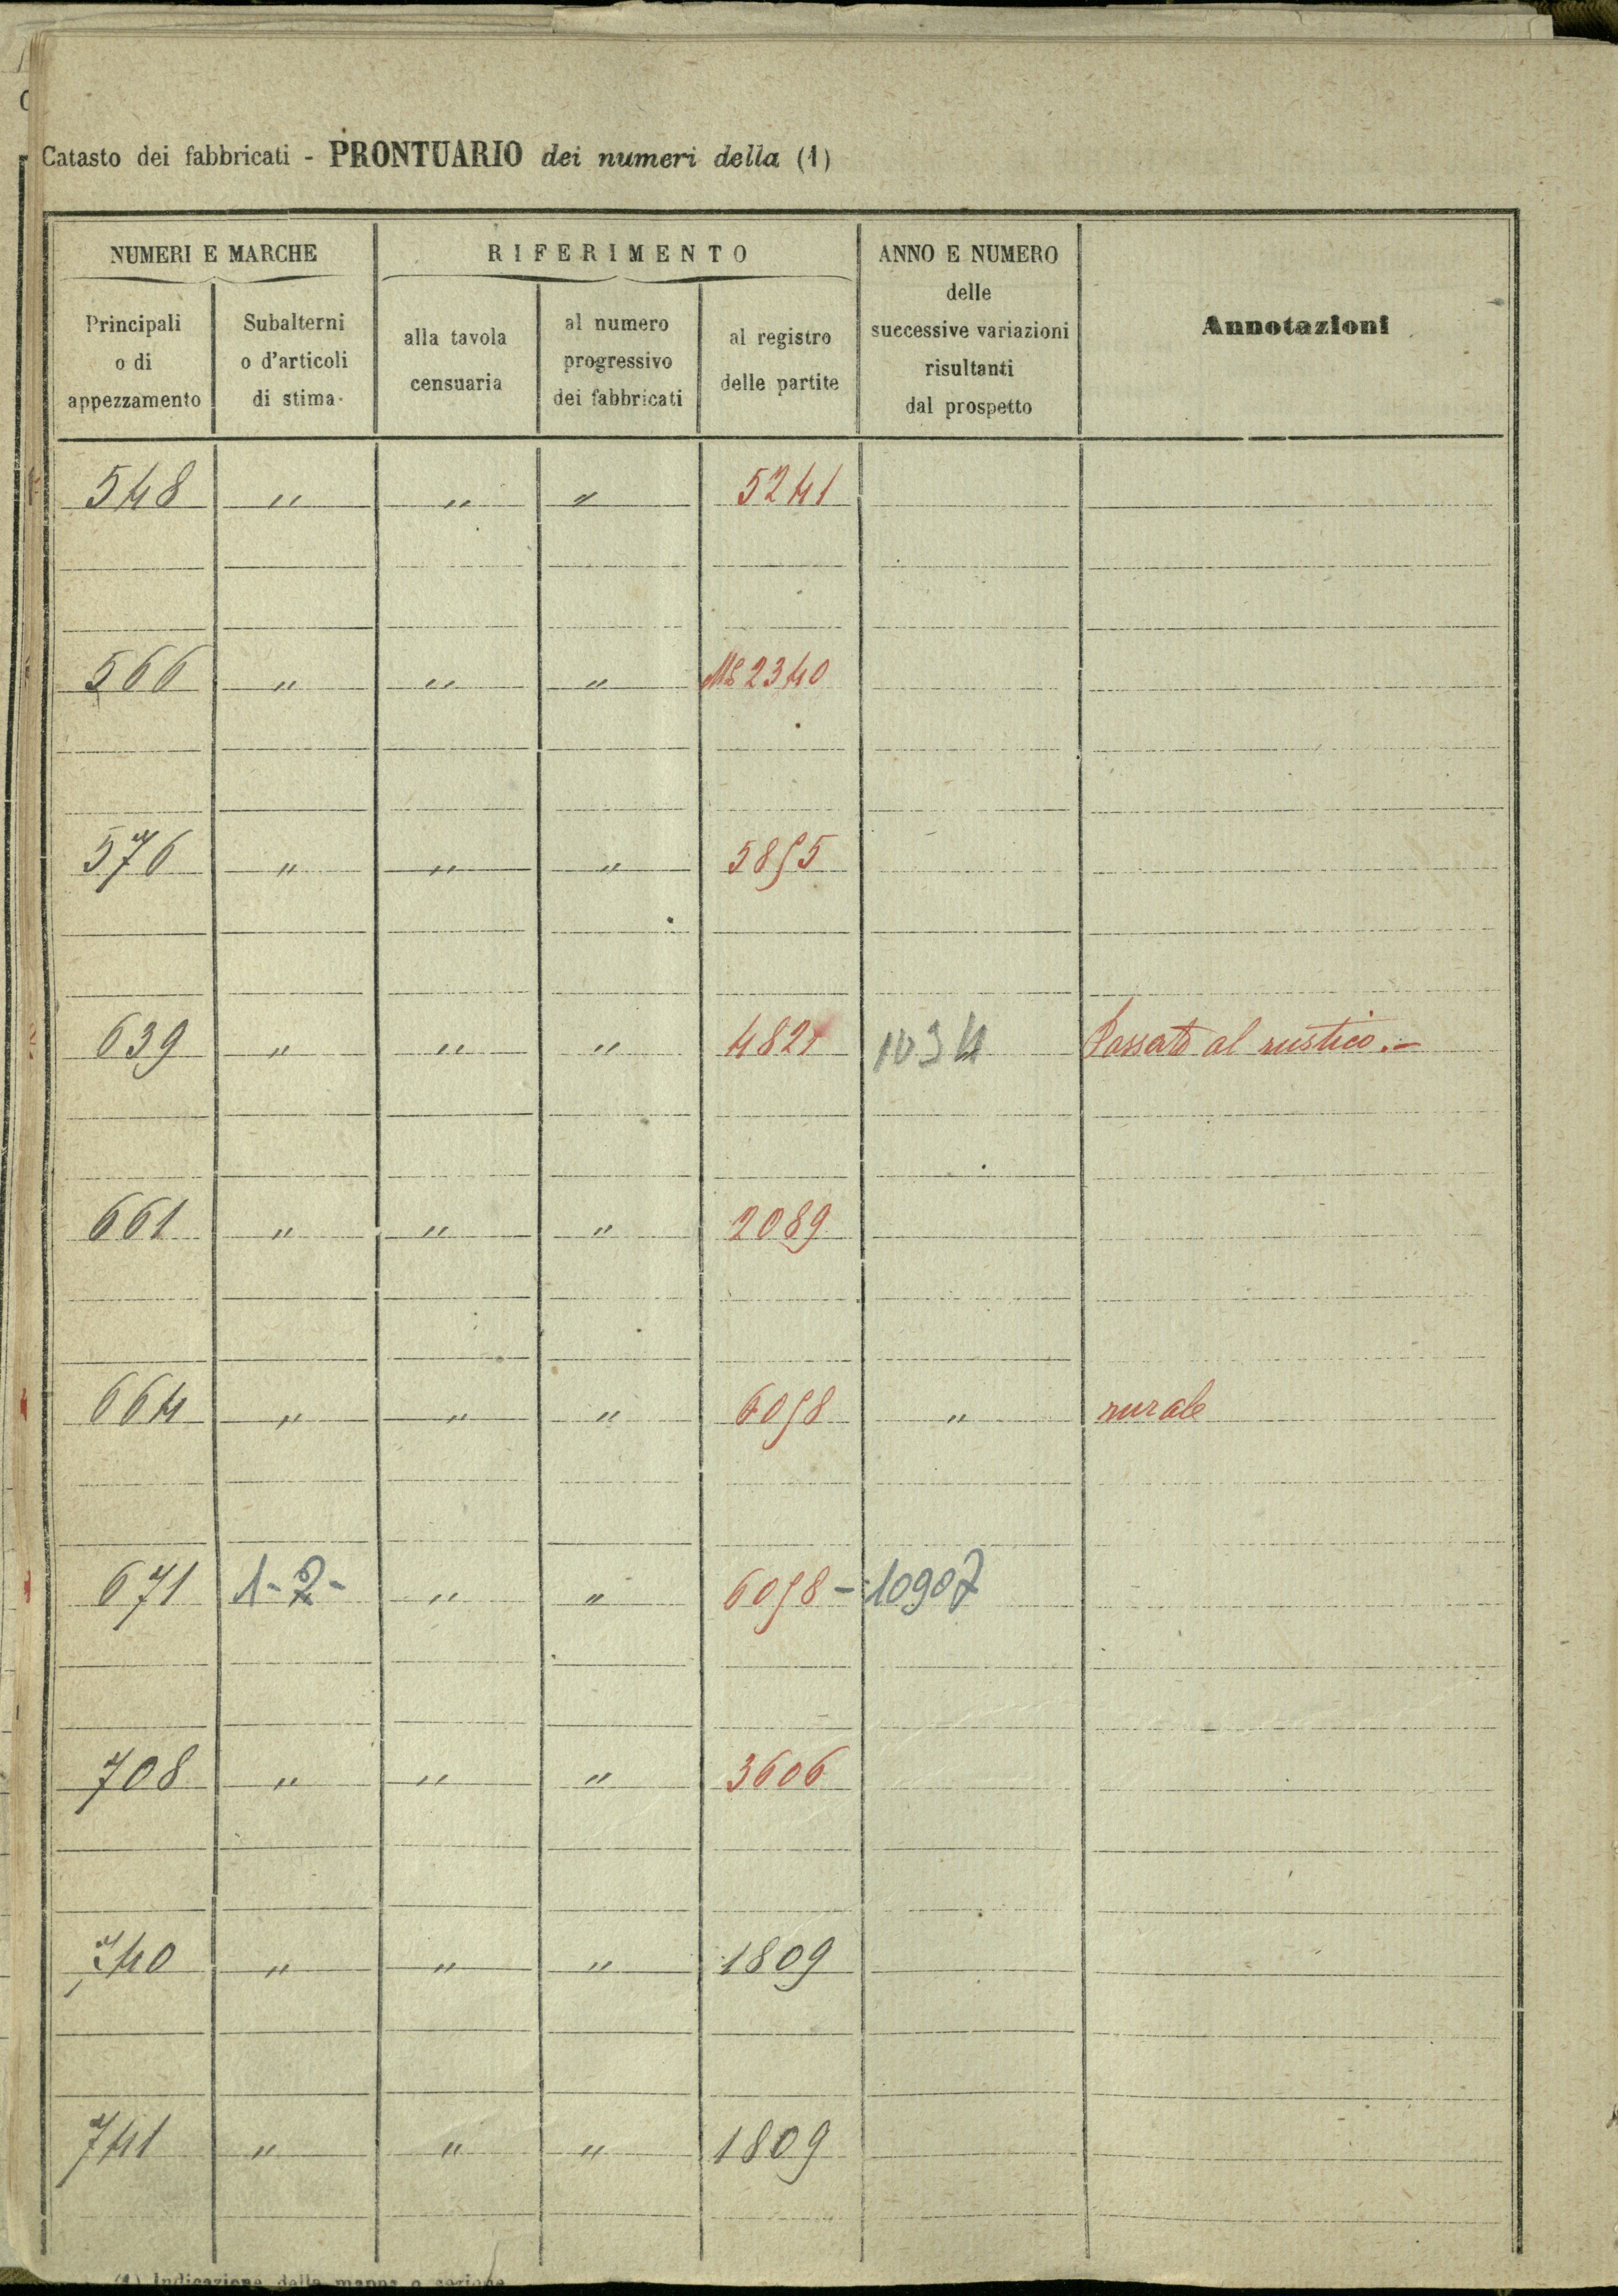 Catasto dei fabbricati - PRONTUARIO dei numeri della (1)
NUMERI E MARCHE
RIFERIMENTO
ANNO E NUMERO
delle
successive variazioni
risultanti
dal prospetto
Annotazioni
Principali
o di
appezzamento
Subalterni
o d'articoli
di stima
alla tavola
censuaria
al numero
progressivo
dei fabbricati
al registro
delle partite
548 " " " 5241
566 " " " 2340
576 " " " 5895
639 " " " 482 1034 Passato al rustico.-
661 " " " 2089
664 " " " 6098 " rurale
671 1-2- " " 6098 - 10907
708 " " " 3606
740 " " " 1809
741 " " " 1809
(1) Indicazione della mappa o sezione